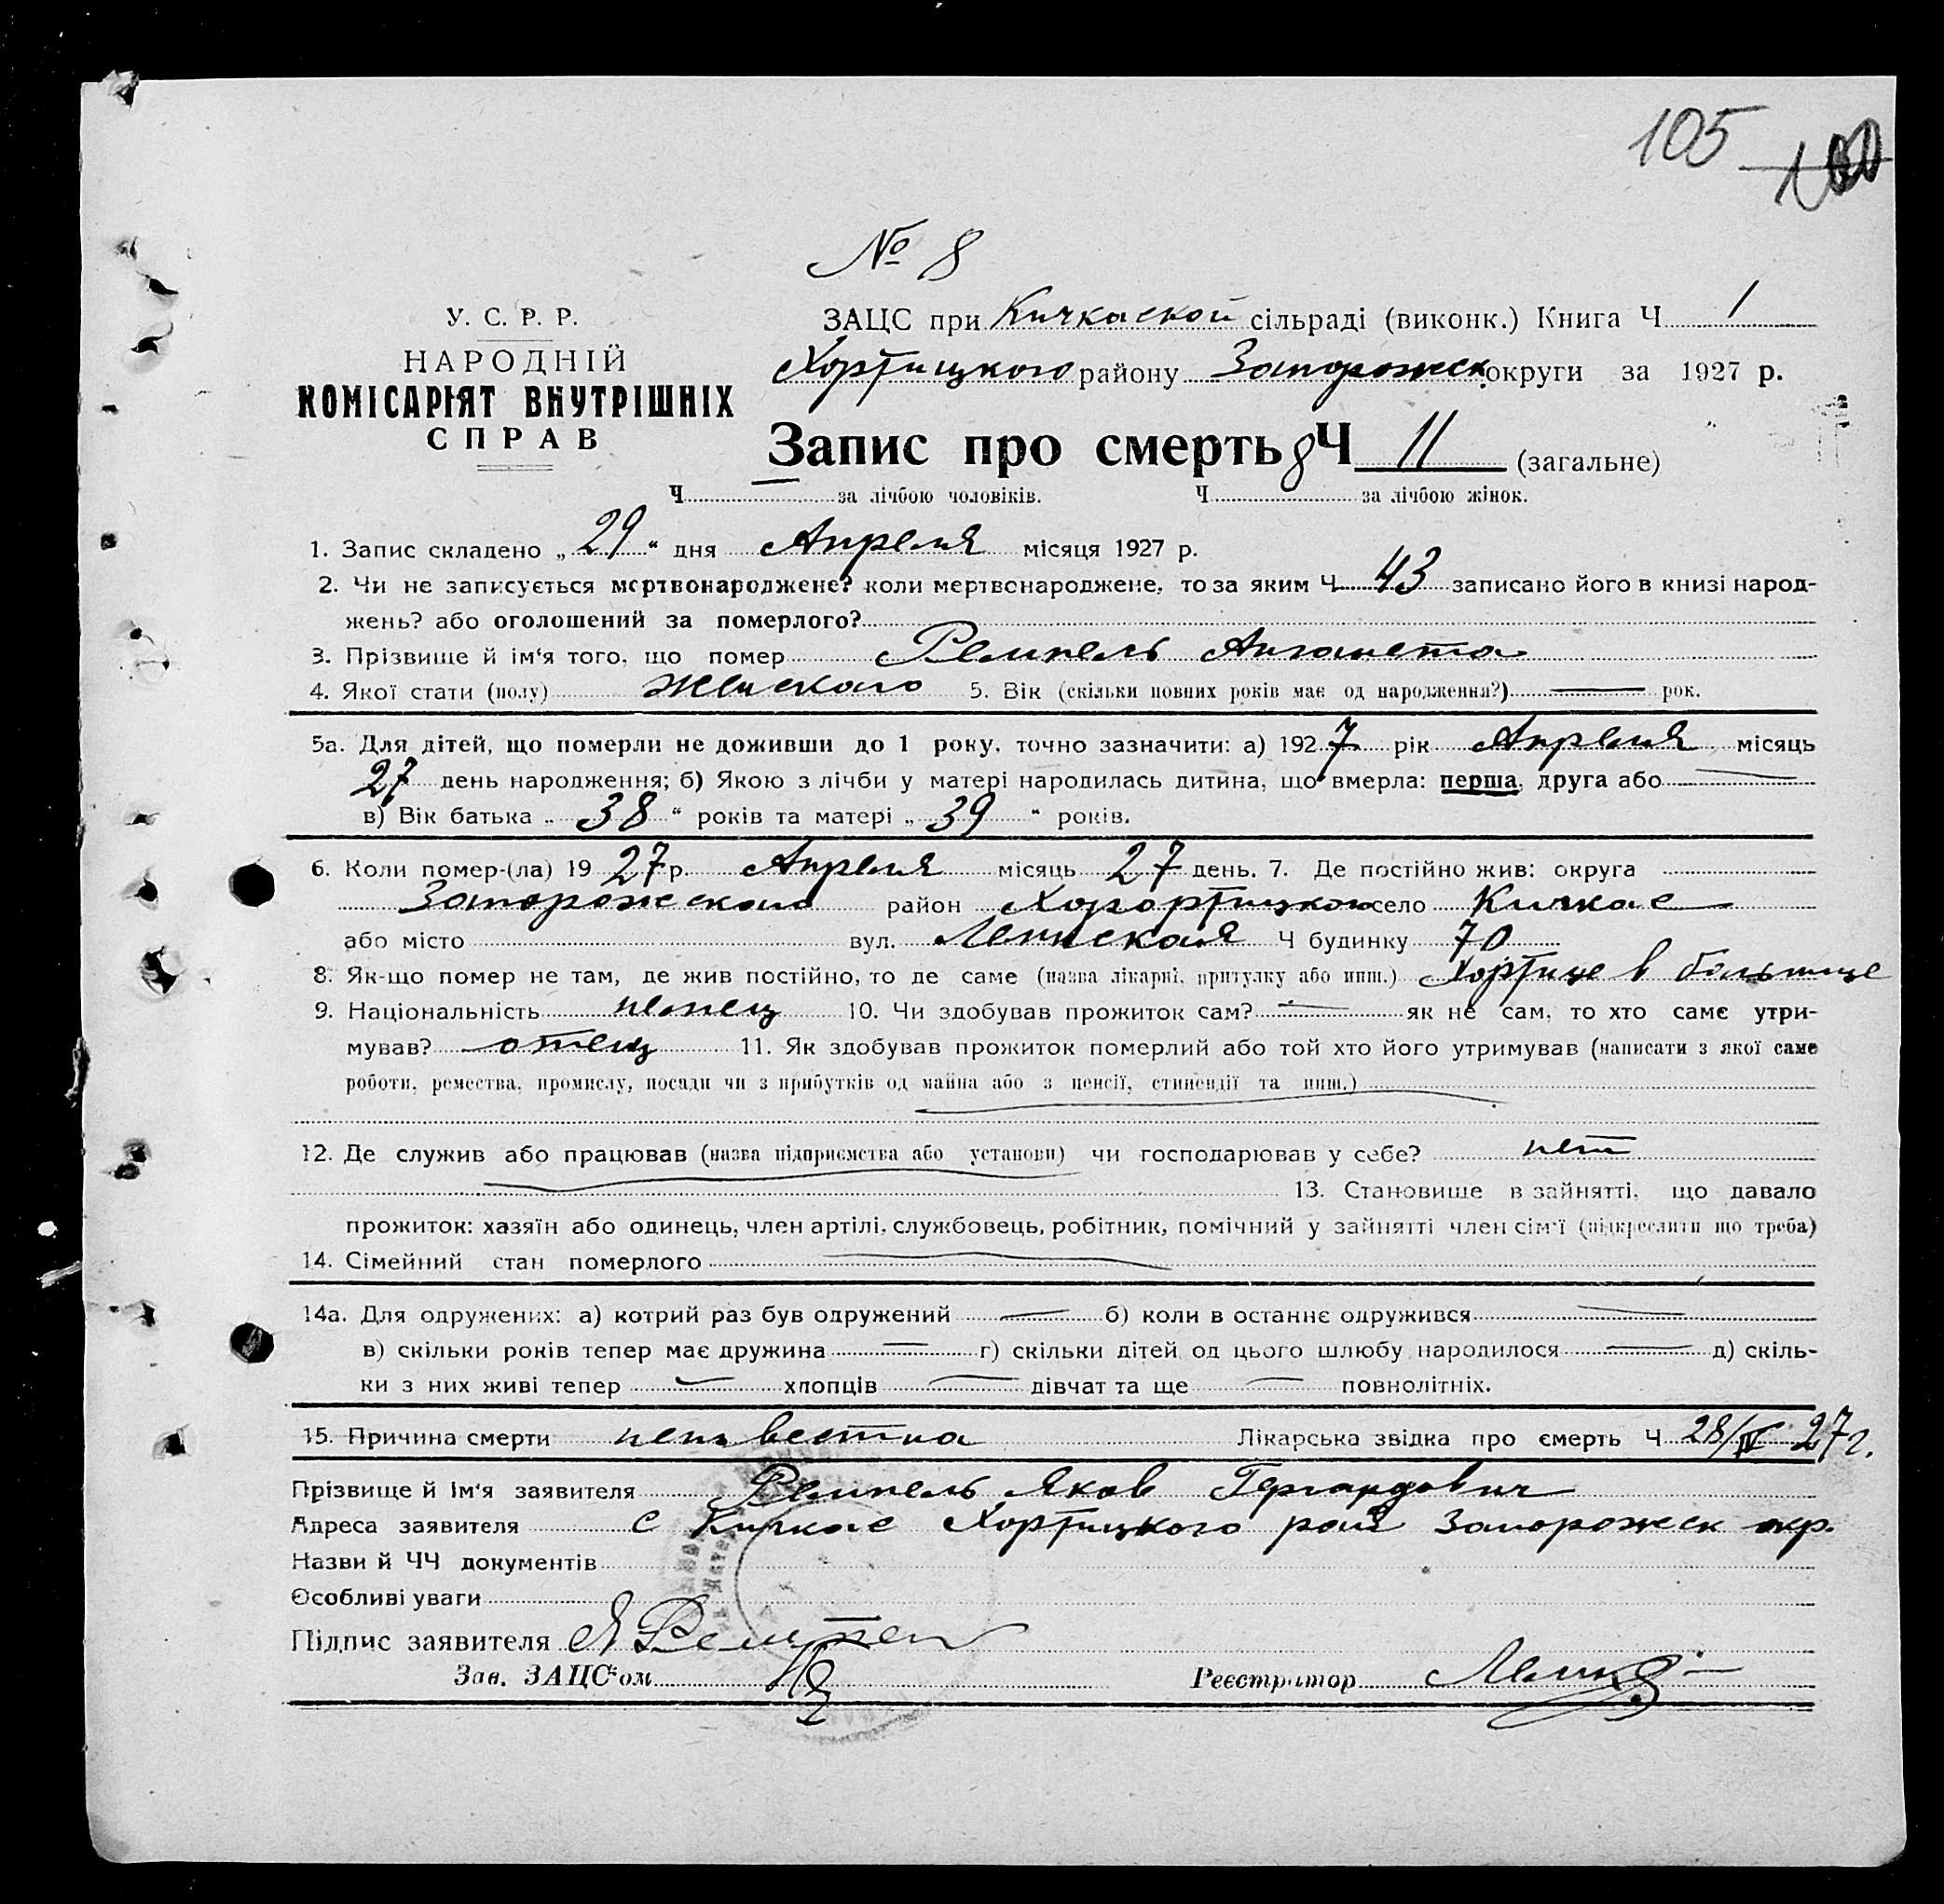 105
№ 8
У. С. Р. Р.
НАРОДНІЙ
КОМІСАРІЯТ ВНУТРІШНІХ
СПРАВ
ЗАЦС при Кичкаской сільраді (виконк.) Книга Ч 1
Хортицкого району Запорожск округи за 1927 р.
Запис про смерть 8 Ч 11 (загальне)
Ч за лічбою чоловіків. Ч за лічбою жінок.
1. Запис складено „ 29 “ дня Апреля місяця 1927 р.
2. Чи не записується мертвонароджене? коли мертвонароджене, то за яким Ч 43 записано його в книзі народ-
жень? або оголошений за померлого?
3. Прізвище й ім‘я того, що помер Ремпель Анганета
4. Якої стати (полу) Женского 5. Вік (скільки повних років має од народження?) — рок.
5а. Для дітей, що померли не доживши до 1 року, точно зазначити: а) 1927 рік Апреля місяць
27 день народження; б) Якою з лічби у матері народилась дитина, що вмерла: перша, друга або —
в) Вік батька „ 38 “ років та матері „ 39 “ років.
6. Коли помер-(ла) 1927 р. Апреля місяць 27 день. 7. Де постійно жив: округа
Запорожского район Хорортицкого село Кичкас
або місто вул. Ленинская Ч будинку 70
8. Як-що помер не там, де жив постійно, то де саме (назва лікарні, притулку або инш.) Хортице в больнице
9. Національність немец 10. Чи здобував прожиток сам? — як не сам, то хто саме утри-
мував? отец 11. Як здобував прожиток померлий або той хто його утримував (написати з якої саме
роботи, ремества, промислу, посади чи з прибутків од майна або з пенсії, стипендії та инш.)
12. Де служив або працював (назва підприємства або установи) чи господарював у себе? нет
13. Становище в зайнятті, що давало
прожиток: хазяїн або одинець, член артілі, службовець, робітник, помічний у зайнятті член сім‘ї (підкреслити що треба)
14. Сімейний стан померлого —
14а. Для одружених: а) котрий раз був одружений — б) коли в останнє одружився —
в) скільки років тепер має дружина — г) скільки дітей од цього шлюбу народилося — д) скіль-
ки з них живі тепер — хлопців — дівчат та ще — повнолітніх.
15. Причина смерти неизвестна Лікарська звідка про смерть Ч 28/IV 27 г.
Прізвище й Ім‘я заявителя Ремпель Яков Гергардович
Адреса заявителя с Кичкас Хортицкого рай Запорожск окр.
Назви й ЧЧ документів
Особливі уваги
Підпис заявителя Я Ремпель
Зав. ЗАЦС‘ом
Реєстратор